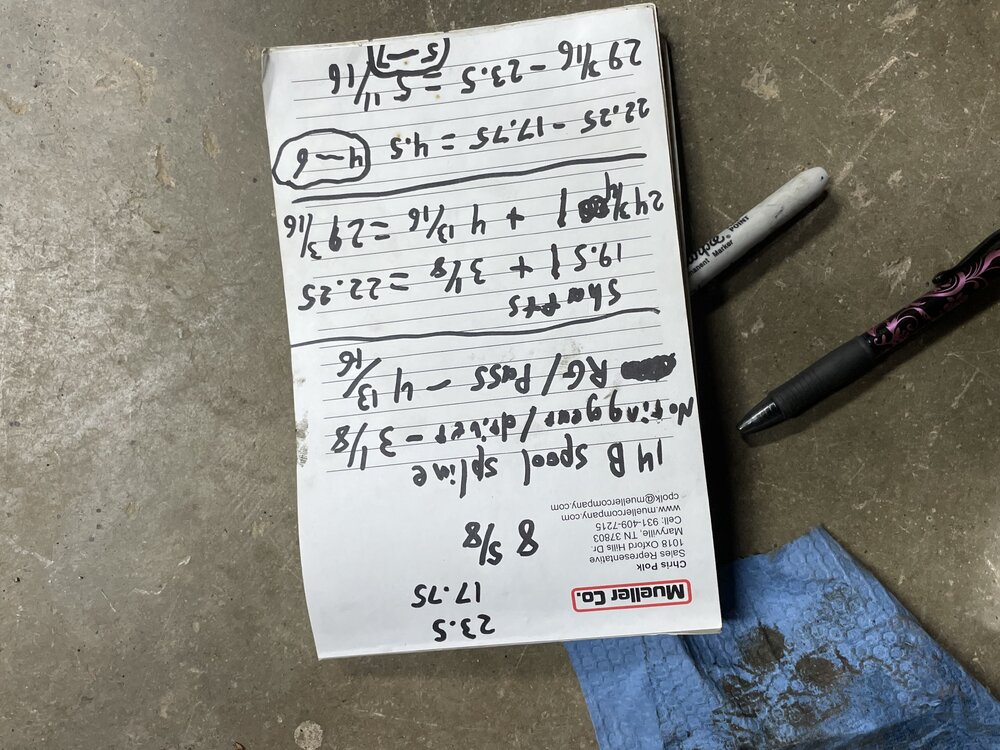 23.5
17.75
Mueller Co.
Chris Polk
Sales Representative
1018 Oxford Hills Dr.
Maryville, TN 37803
Cell: 931-409-7215
www.muellercompany.com
cpolk@muellercompany.com
8 5/8
14 B spool spline
Not ring gear/driver - 3 1/8
RG/Pass - 4 13/16
Shafts
19.5 | + 3 1/8 = 22.25
24 3/4 | + 4 13/16 = 29 3/16
22.25 - 17.75 = 4.5 4-6
29 3/16 - 23.5 = 5 11/16
(5-7)
Marker
POINT